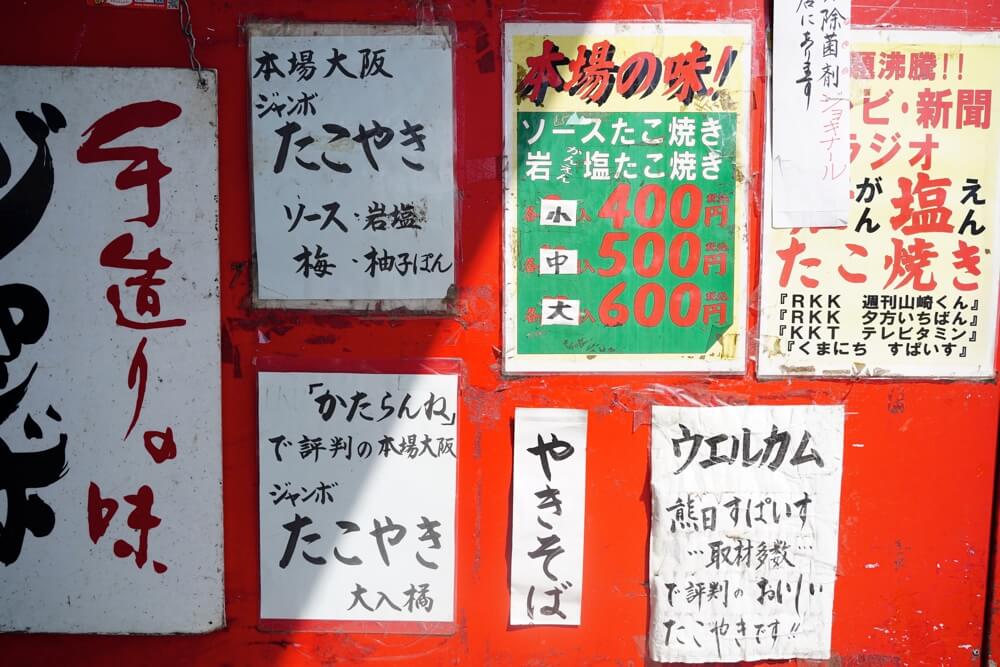 手造りの味
本場大阪
ジャンボ
たこやき
ソース・岩塩
梅・柚子ぽん
「かたらんね」
で評判の本場大阪
ジャンボ
たこやき
大入橘
本場の味!
ソースたこ焼き
岩塩たこ焼き
がんえん
小 400円
中 500円
大 600円
やきそば
ウエルカム
熊日すぱいす
…取材多数…
で評判のおいしい
たこやきです!!
除菌剤
ジョキナール
店にあります
沸騰!!
ビ・新聞
ラジオ
がん塩えん
たこ焼き
『RKK 週刊山崎くん』
『RKK 夕方いちばん』
『KKT テレビタミン』
『くまにち すぱいす』